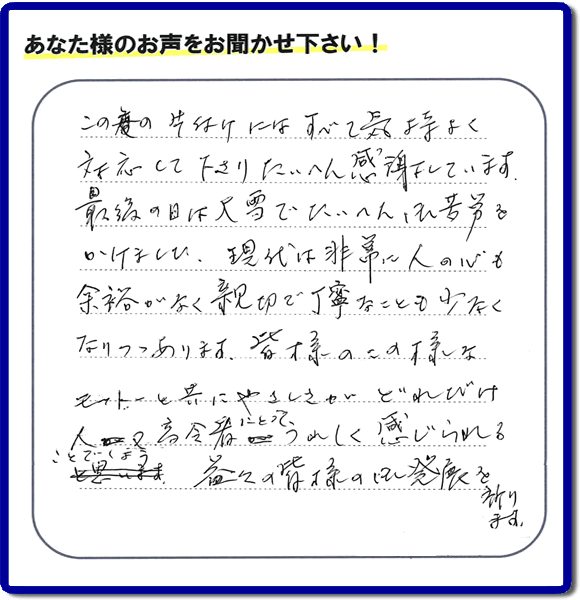 あなた様のお声をお聞かせ下さい！
この度の片付けにはすべて気持よく
対応して下さりたいへん感謝しています。
最後の日は大雪でたいへんご苦労を
かけました。現代は非常に人の心も
余裕がなく親切で丁寧なことも少なく
なりつつあります。皆様のこの様な
モットーと共にやさしさが どれだけ
人 又高令者にとってうれしく感じられる
ことでしょう
と思います。益々の皆様のご発展を
祈り
ます。